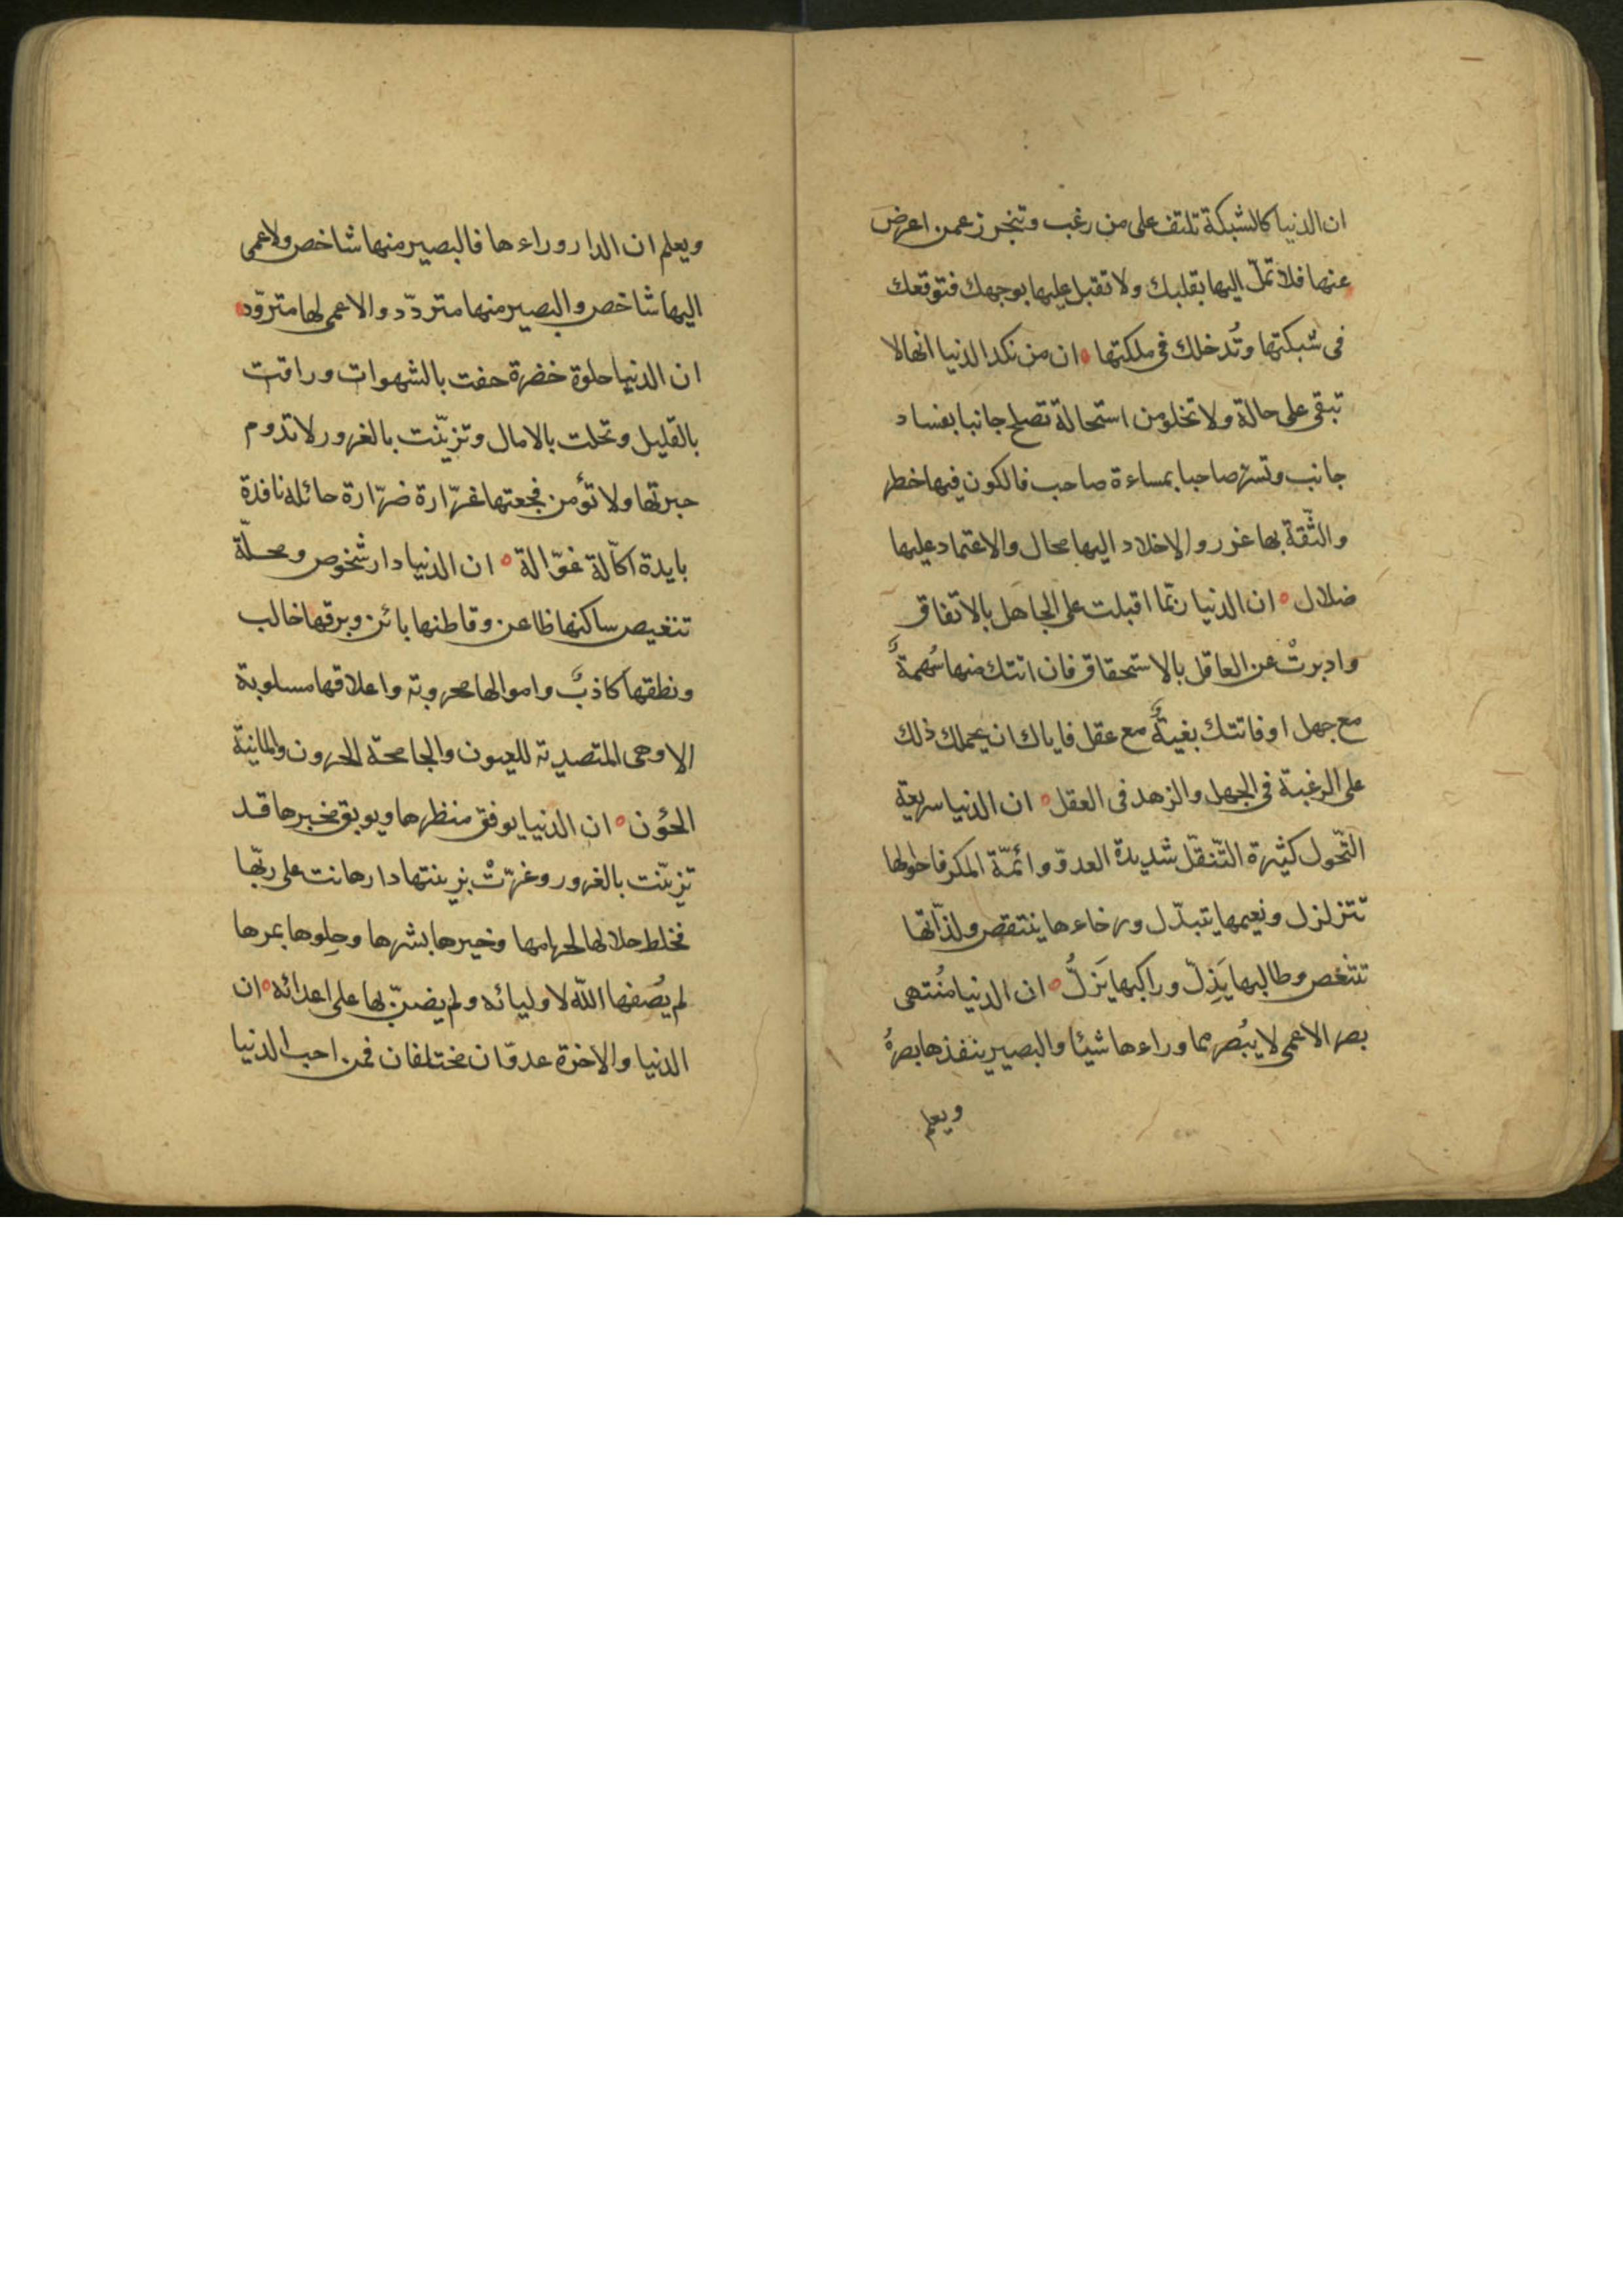 ان الدنيا كالشبكة تلتف على من رغب وتنحرز عمن اعرض
عنها فلا تملّ اليها بقلبك ولا تقبل عليها بوجهك فتوقعك
فى شبكتها وتُدخلك فى ملكتها ان من نكد الدنيا انها لا
تبقى على حالة ولا تخلو من استحالة تصلح جانبا بفساد
جانب وتسرّ صاحبا بمساءة صاحب فالكون فيها خطر
والثّقة بها غرور والاخلاد اليها محال والاعتماد عليها
ضلال ان الدنيا ربّما اقبلت على الجاهل بالاتفاق
وادبرتْ عن العاقل بالاستحقاق فان اتتك منها سُهمةٌ
مع جهل او فاتتك بغيةٌ مع عقل فاياك ان يحملك ذلك
على الرغبة فى الجهل والزهد فى العقل ان الدنيا سريعة
التّحول كثيرة التّنقّل شديدة العدوّ وائمّة المكر فاحوالها
تتزلزل ونعيمها يتبدّل ورخاءها ينتقص ولذّاتها
تتنغص وطالبها يَذِلّ وراكبها يَزلُّ ان الدنيا مُنتهى
بصر الاعمى لا يُبصر مما وراءها شيئا والبصير ينفذها بصرهُ
ويعلم
ويعلم ان الدار وراءها فالبصير منها شاخص ولاعمى
اليها شاخص والبصير منها متردّد والاعمى لها متروّد
ان الدنيا حلوة خضرة حفت بالشهوات وراقت
بالقليل وتحلت بالامال وتزيّنت بالغرور لا تدوم
حبرتها ولا تؤمن فجعتها غرّارة ضرّارة حائله نافدة
بايدة اكّالة غوّالة ان الدنيا دار شخوص ومحلّة
تنغيص ساكنها ظاعن وقاطنها بائن وبرقها خالب
ونطقها كاذبٌ واموالها محروبة واعلاقها مسلوبة
الا وهى المتصدية للعيون والجامحة الحرون والمانية
الخؤن ان الدنيا يوفق منظرها ويوبق مخبرها قد
تزيّنت بالغرور وغرّتْ بزينتها دار هانت على ربّها
فخلط حلالها لحرامها وخيرها بشرها وحلوها بمرها
لم يُصفها اللّه لاوليائه ولم يضنّ لها على اعدائه ان
الدنيا والاخرة عدوّان مختلفان فمن احب الدنيا